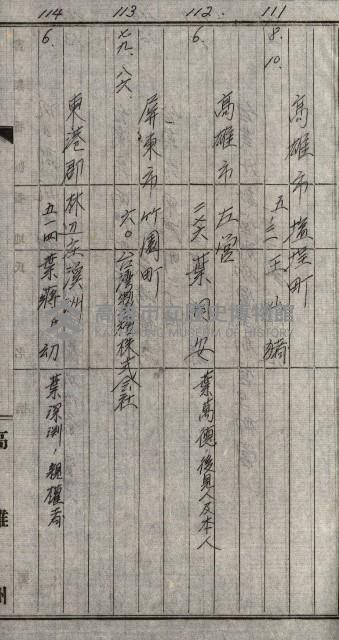 111
8.
10.
高雄市塩埕町
五ノ二 王 小 犕
112
6.
高雄市左營
二六六 葉 國 安 葉萬德ノ後見人及本人
113
七九、八六、
屏東市竹園町
六〇 台湾燐寸株式会社
114
6.
東港郡林辺庄溪洲
五一四 葉蔣氏幼 葉深渊ノ親権者
高雄州
高雄市立歷史博物館
KAOHSIUNG MUSEUM OF HISTORY